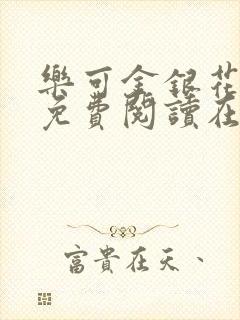 樂可金銀花
免費閱讀在
富貴在天、